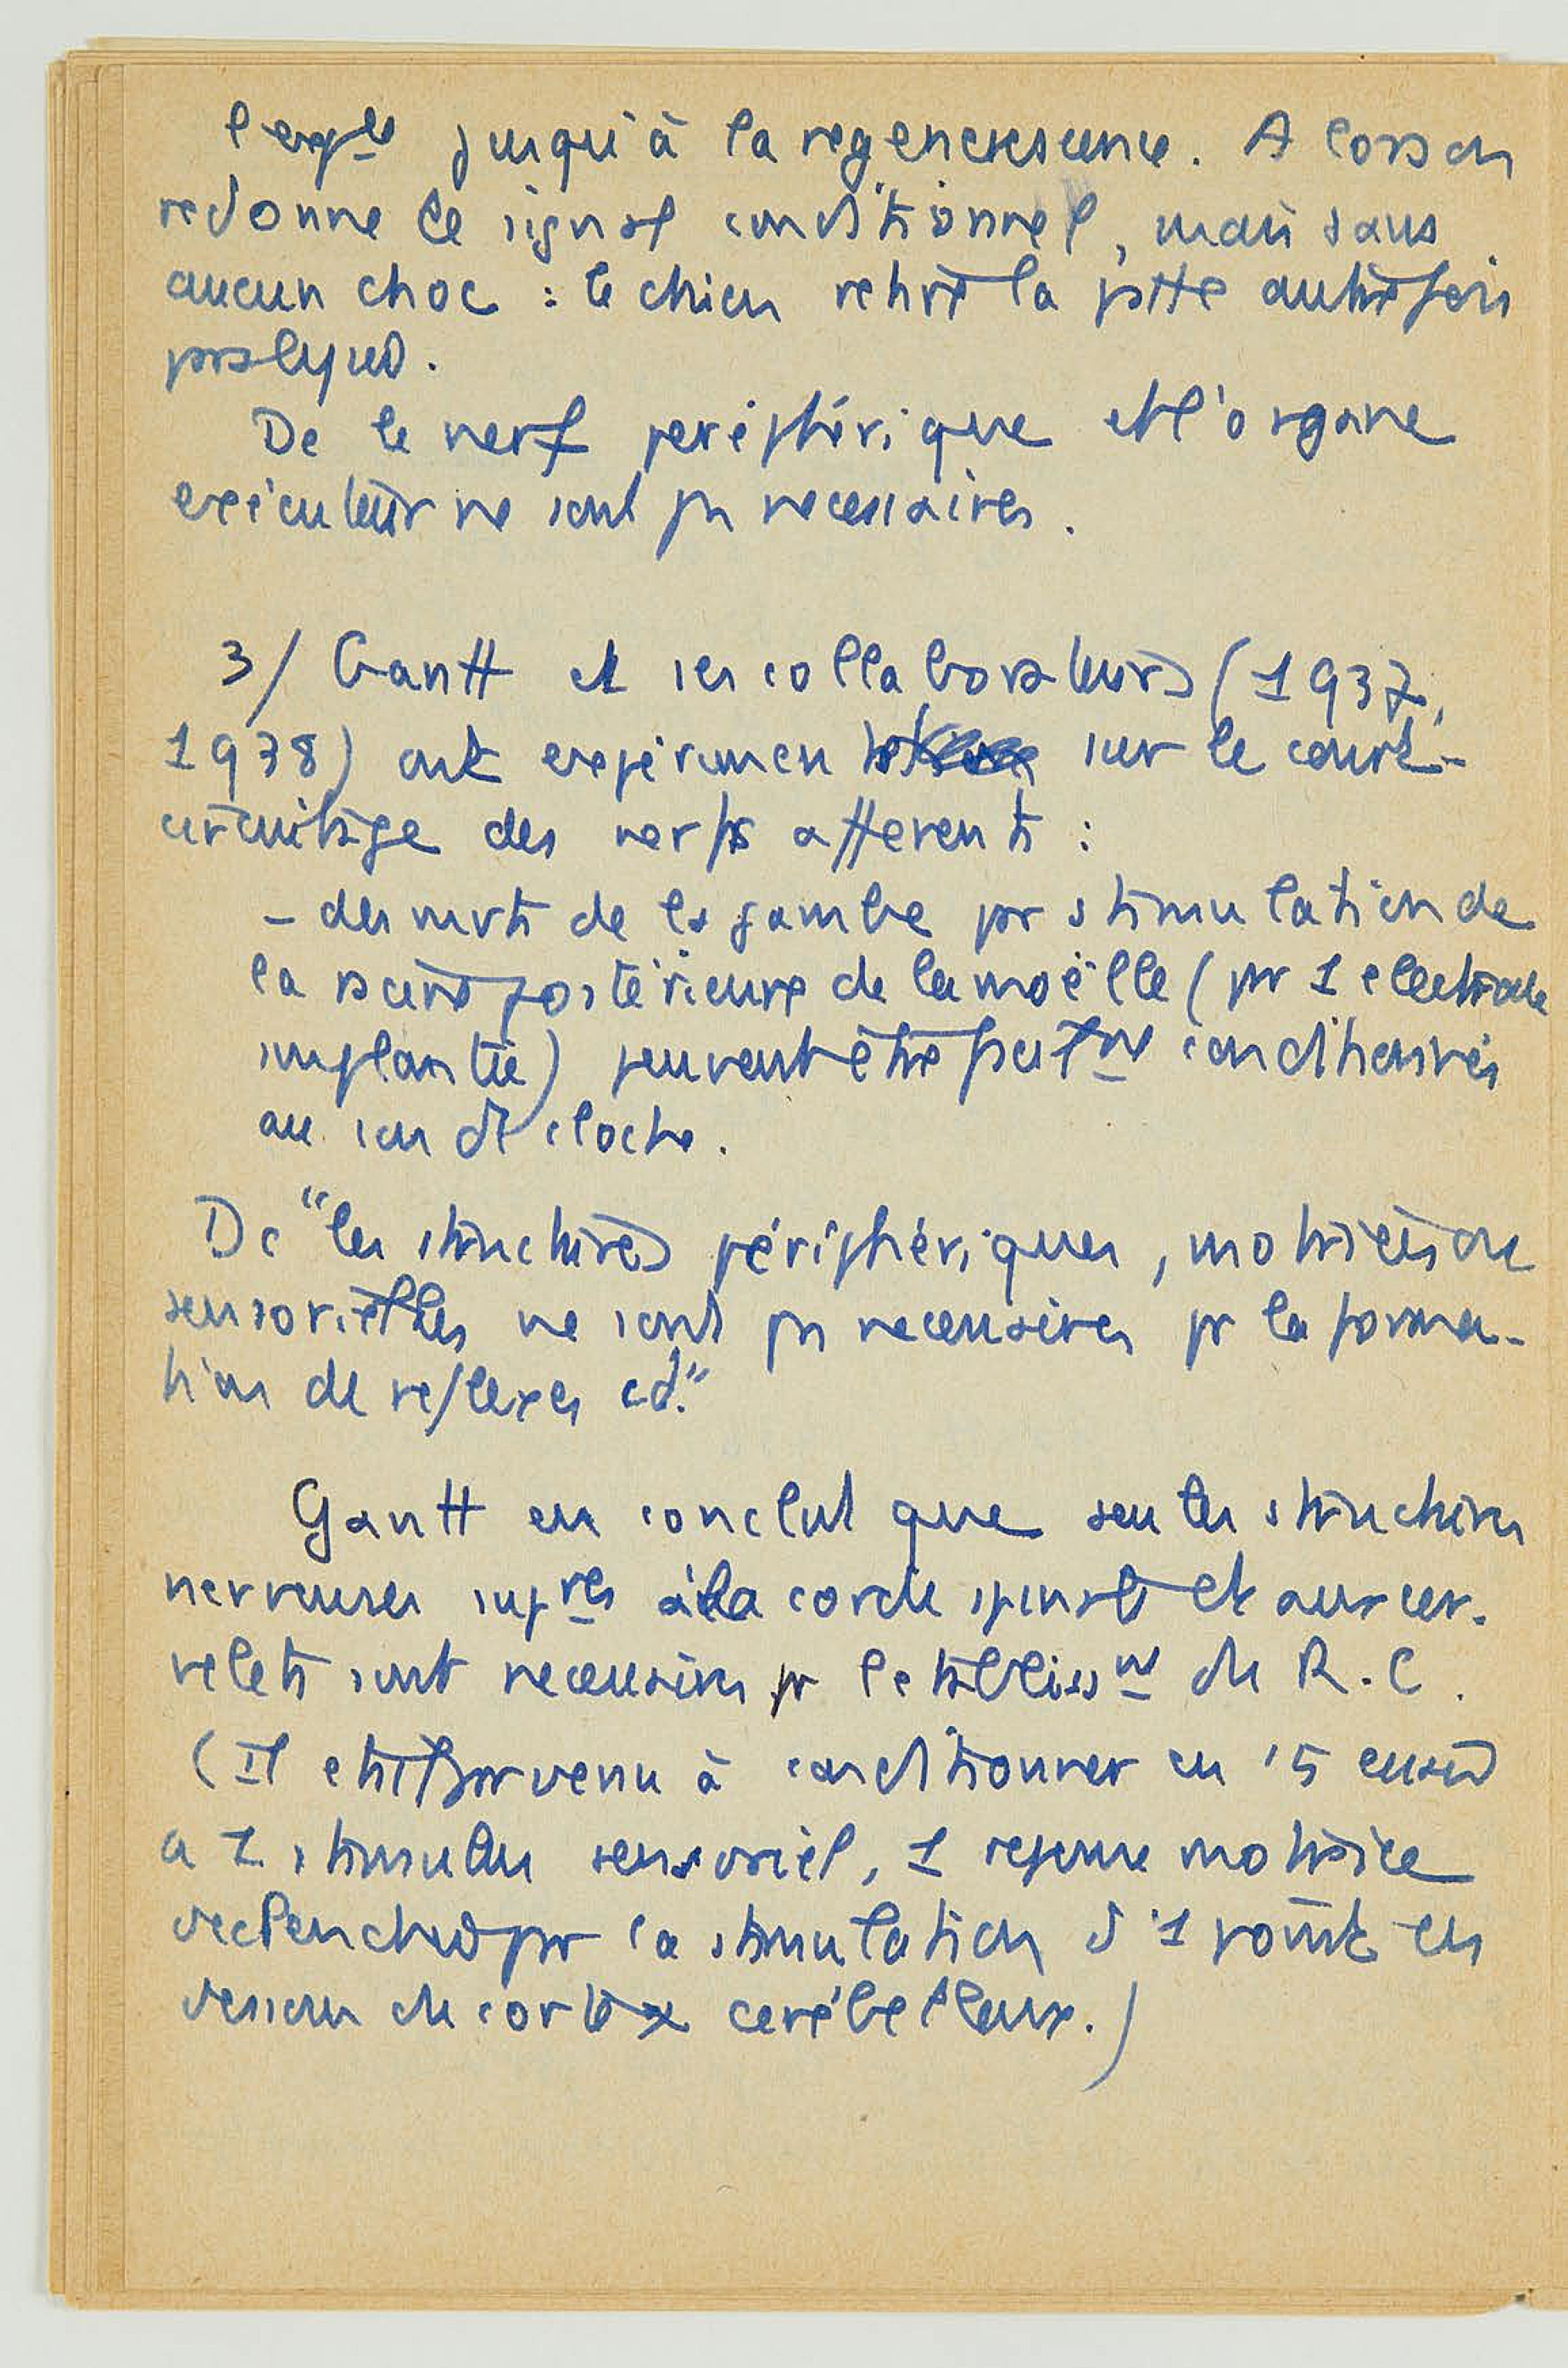 l'expce jusqu'à la regenerescence. Alors on
redonne le signal conditionnel, mais sans
aucun choc : le chien retire la patte autrefois
paralysée.
Dc le nerf périphérique et l'organe
exécuteur ne sont ps necessaires.
3/ Gantt et ses collaborateurs (1937,
1938) ont experimenté sur le court-
circuitage des nerfs afferents :
- des mvts de la jambe par stimulation de
la racine postérieure de la moëlle (par 1 electrode
implantée) peuvent être facilmt conditionnés
au son de cloche.
Dc "les structures périphériques, motrices ou
sensorielles ne sont ps necessaires pr la forma-
tion de reflexes cd."
Gantt en conclut que seules structures
nerveuses supres à la corde spinale et aux cer-
velets sont necessaires pr l'etablissmt du R.C.
(Il etait parvenu à conditionner en 15 essais
a 1 stimulus sensoriel, 1 reponse motrice
declenchée par la stimulation d'1 point en
dessous du cortex cerébelleux.)